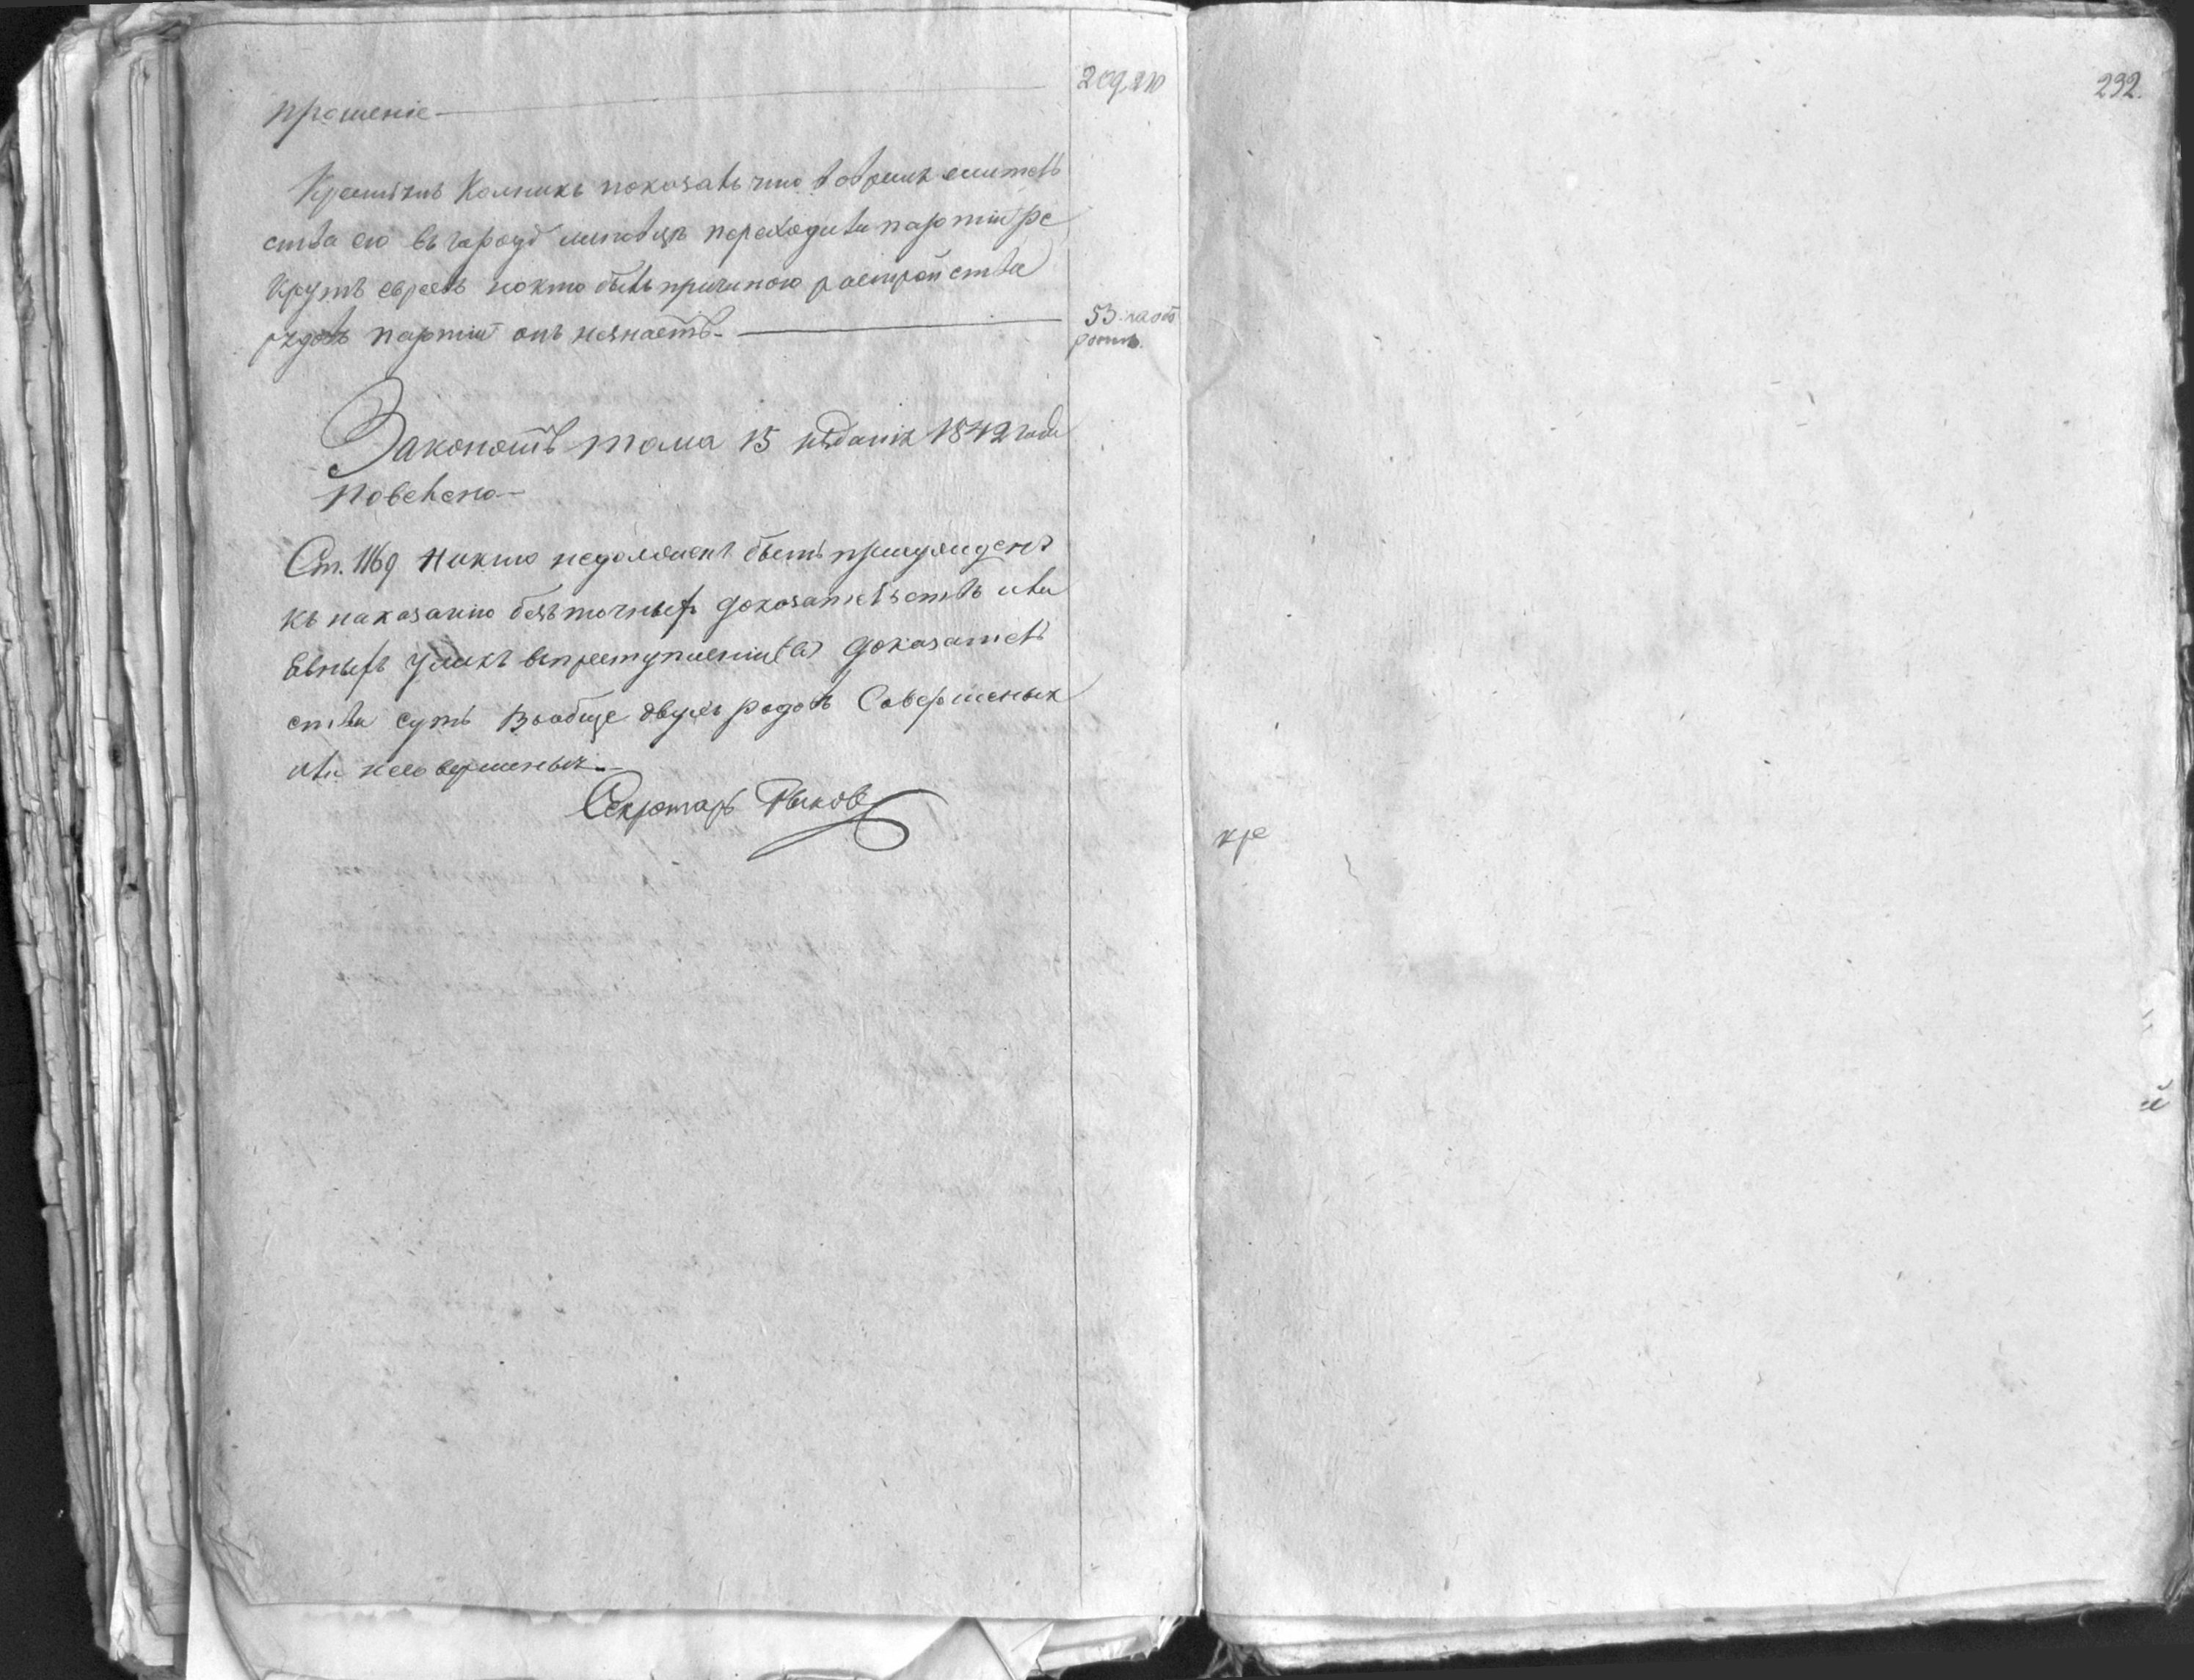 прошеніе
Колпикъ показалъ что во время жительъ
ства его въ городѣ переходили партіи ре
крутъ евреевъ но кто былъ причиною растройства
партіи онъ незнаетъ
53 на обо
ротѣ.
Законовъ тома 15 изданія 1842 года
повелено
Ст. 1169 Никто недолженъ быть присужденъ
къ наказанію безъ точныхъ доказательствъ или
явныхъ уликъ впреступленіи доказатель
ства суть вообще двухъ родовъ Совершеныя
или несовершеныя.
Секретарь Рыковъ
232.
кре